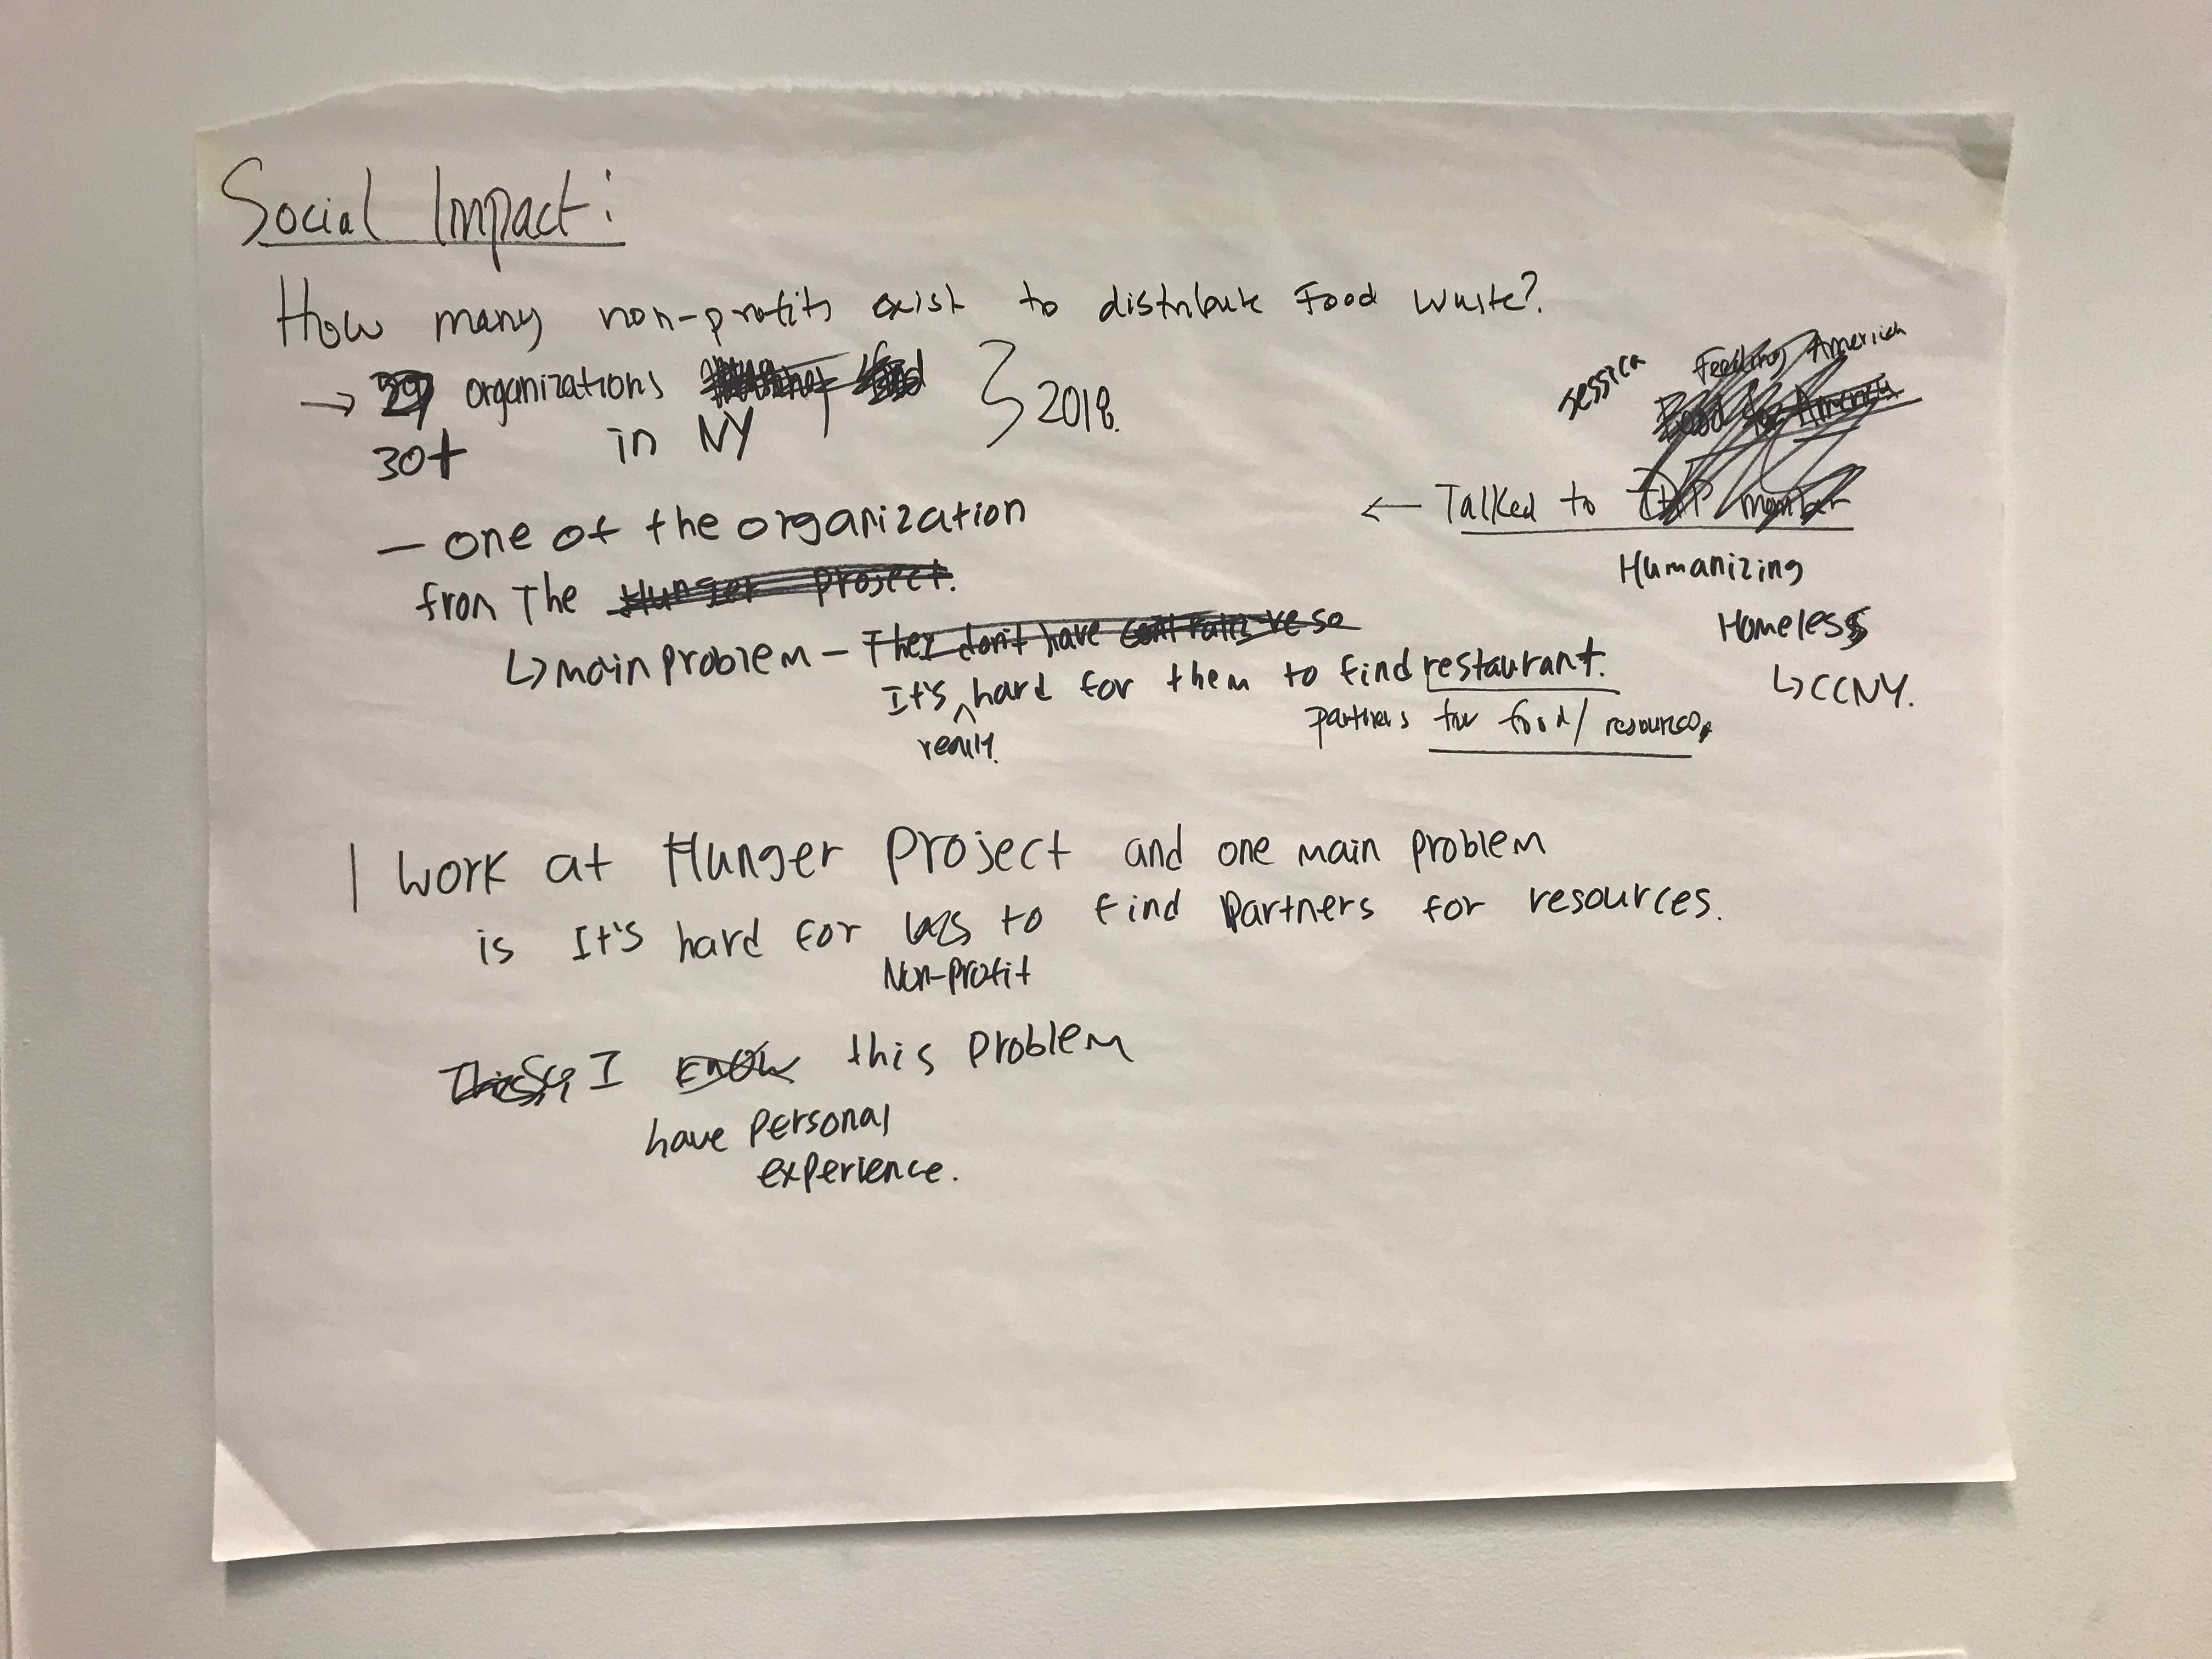 Social Impact:
How many non-profits exist to distribute Food Waste?
→ organizations
30+ in NY
2018.
Jessica Feeding America
— one of the organization
← Talked to
from The Hunger Project.
Humanizing
Homeless
↳ CCNY.
↳ main problem – They don't have
It's hard for them to find restaurant.
really.
partners for food/ resources
I work at Hunger Project and one main problem
is It's hard for us to find partners for resources.
Non-profit
I know this problem
have personal
experience.